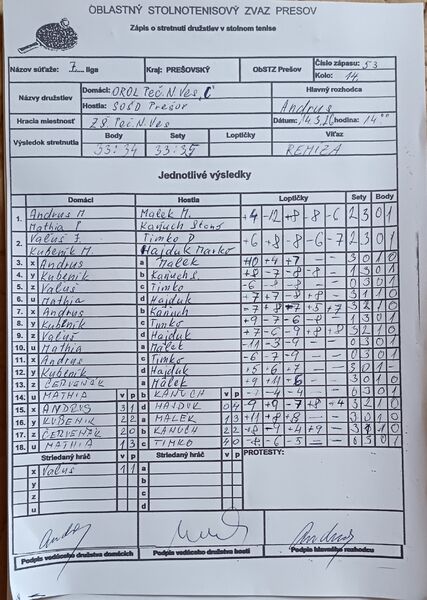 OBLASTNÝ STOLNOTENISOVÝ ZVÄZ PREŠOV
Zápis o stretnutí družstiev v stolnom tenise
Názov súťaže: 7. liga Kraj: PREŠOVSKÝ ObSTZ Prešov Číslo zápasu: 53
Kolo: 14.
Názvy družstiev Domáci: OROL Teč. N. Ves C Hlavný rozhodca
Hostia: SOŠD Prešov Andrus
Hracia miestnosť ZŠ Teč. N. Ves Dátum: hodina: 14 00
Výsledok stretnutia Body Sety Loptičky Víťaz
33:34 33:35 REMÍZA
Jednotlivé výsledky
Domáci Hostia Loptičky Sety Body
1. Andrus M Malek M. +4 -12 +8 -8 -6 2 3 0 1
Mathia
2. Valuš J. Timko D +6 +8 -8 -6 -7 2 3 0 1
Kubeník M. Hajduk Marko
3. x Andrus a Malek +10 +4 +7 — — 3 0 1 0
4. y Kubeník b Kaňuch S. +8 -7 -8 -8 — 1 3 0 1
5. z Valuš c Timko -6 -8 -8 — — 0 3 0 1
6. u Mathia d Hajduk +7 +7 -8 +8 — 3 1 1 0
7. x Andrus b Kaňuch -7 +8 +7 +5 +7 3 2 1 0
8. y Kubeník c Timko +9 -7 -6 -8 1 3 0 1
9. z Valuš d Hajduk +7 -6 -9 +8 +8 3 2 1 0
10. u Mathia a Malek -11 -3 -9 — — 0 3 0 1
11. x Andrus c Timko -6 -7 -9 — — 0 3 0 1
12. y Kubeník d Hajduk +5 +6 +7 — — 3 0 1 0
13. z ČERVEŇÁK a Málek +9 +11 +6 — 3 0 1 0
14. u MATHIA v p b KAŇUCH v p -1 -4 -4 — 0 3 0 1
15. x ANDRUS 3 1 d HAJDUK 0 4 -9 +9 -7 +8 +4 3 2 1 0
16. y KUBENÍK 2 2 a MÁLEK 1 3 +11 +8 +8 — — 3 0 1 0
17. z ČERVEŇÁK 2 0 b KAŇUCH 2 2
18. u MATHIA 1 3 c TIMKO 4 0 -8 -6 -5 — — 0 3 0 1
Striedaný hráč v p Striedaný hráč v p PROTESTY:
x Valuš 1 1 a
y b
z c
u d
Podpis vedúceho družstva domácich Podpis vedúceho družstva hostí Podpis hlavného rozhodcu